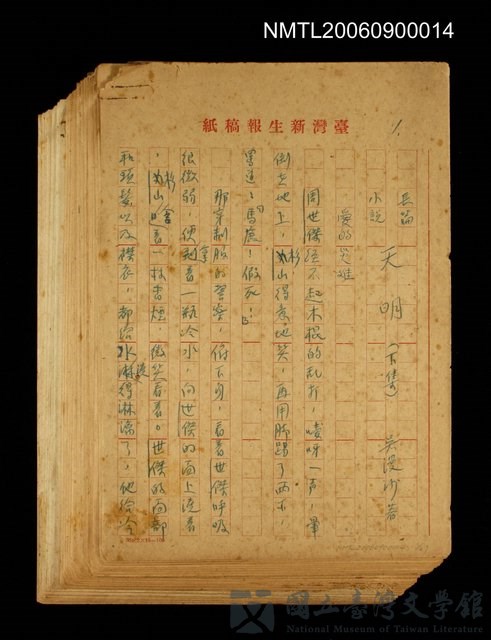 NMTL20060900014
臺灣新生報稿紙
1.
長篇
小說 天明（下集） 吳漫沙著
愛的災難
周世傑經不起木棍的亂打，嗳呀一聲，暈
倒在地上，杉山得意地笑，再用脚踢了兩下，
罵道：「馬鹿！假死！」
那穿制服的警察，俯下身，看着世傑呼吸
很微弱，便拿着一瓶冷水，向世傑的面上澆着
，杉山含着一枝香煙，微笑看着。世傑的面部
和頭髮以及襟衣，都給水澆得淋漓了，他給冷
國立臺灣文學館
National Museum of Taiwan Literature